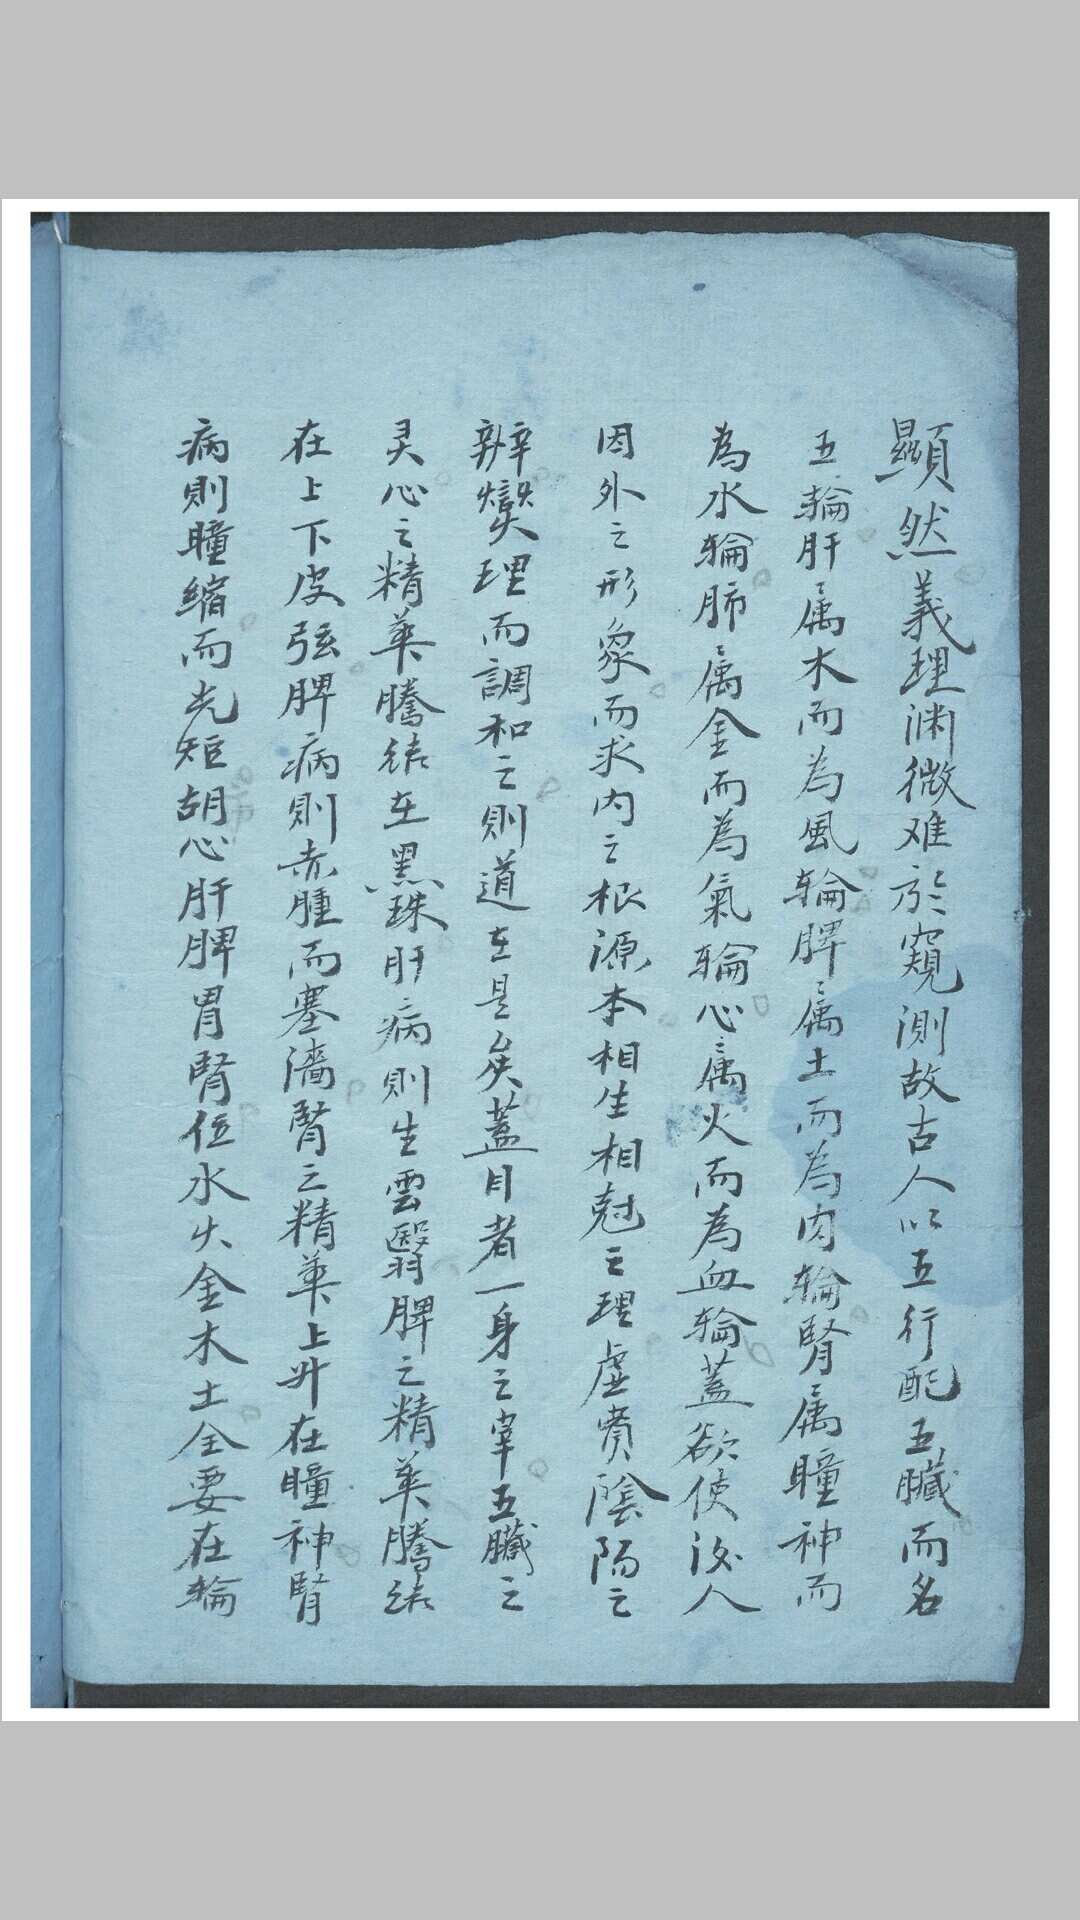 顯然義理渊微难於窺測故古人以五行配五臟而名
五輪肝属木而為風輪脾属土而為肉輪腎属瞳神而
為水輪肺属金而為氣輪心属火而為血輪蓋欲使後人
因外之形象而求内之根源本相生相尅之理虚實陰陽之
辨爕理而調和之則道在是矣蓋目者一身之宰五臟之
灵心之精華騰结在黑珠肝病則生雲翳脾之精華騰结
在上下皮弦脾病則赤腫而塞濇腎之精華上升在瞳神腎
病則瞳缩而光矩胡心肝脾胃腎位水火金木土全要在輪